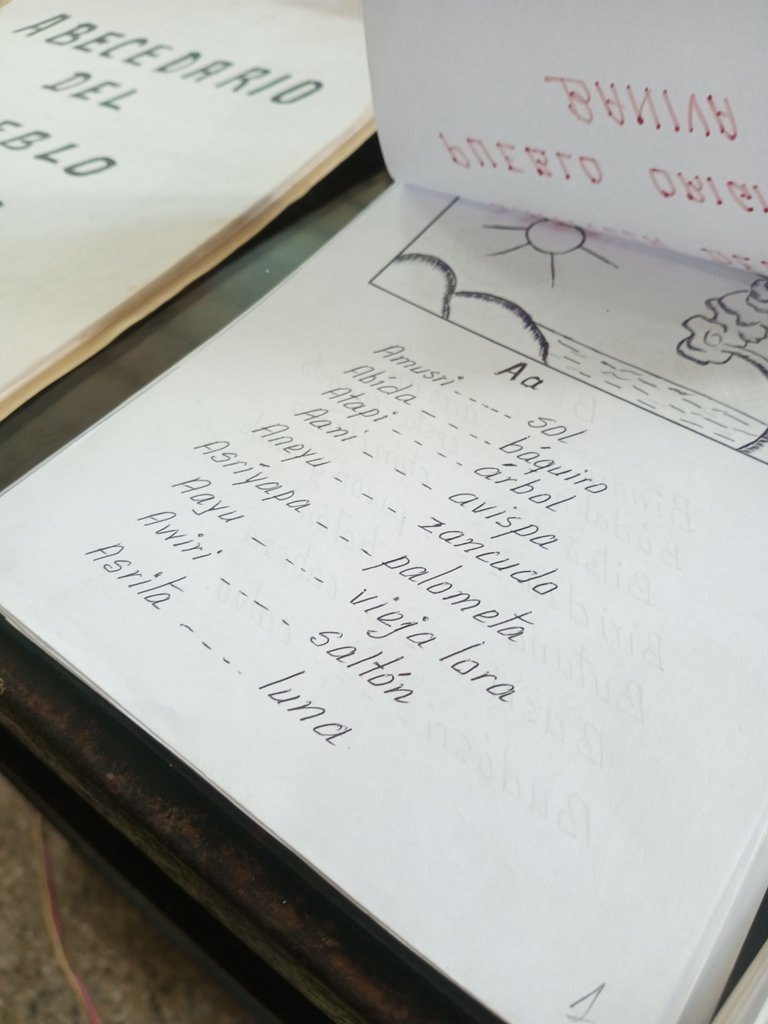 ABECEDARIO
DEL
PUEBLO ORIGI
BANIVA
Aa
Amusri ---- sol
Abida ---- báquiro
Atapi ---- árbol
Aani ---- avispa
Aneyu ---- zancudo
Asriyapa --- palometa
Aayu ---- vieja lora
Awiri ---- saltón
Asrita ---- luna
1